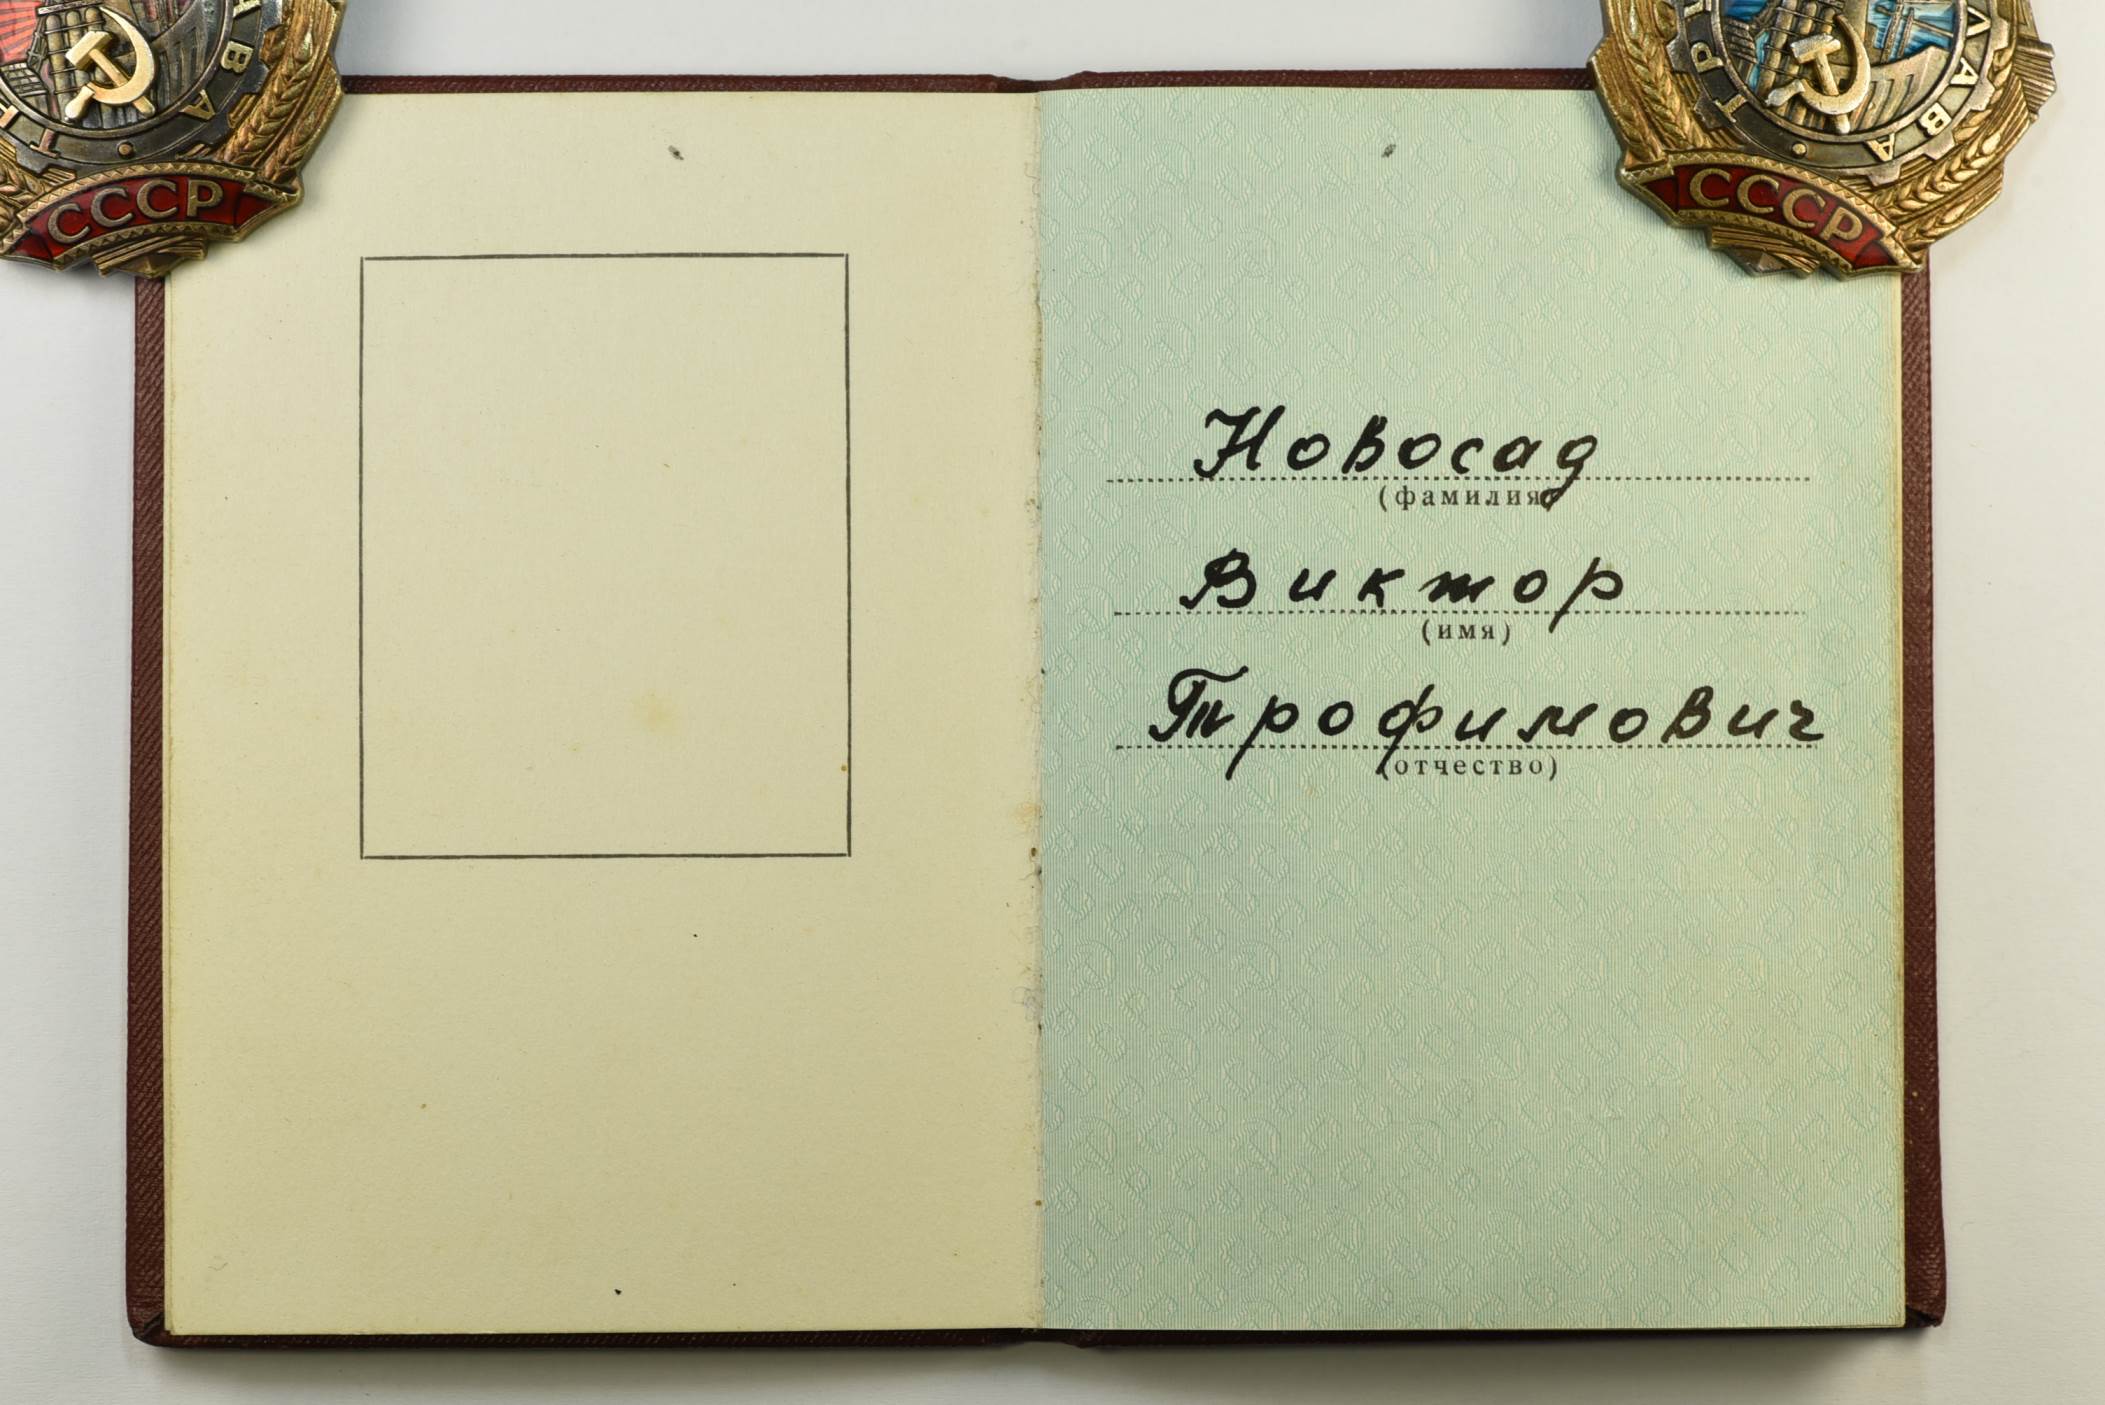 СССР
СССР
Новосад
(фамилия)
Виктор
(имя)
Трофимович
(отчество)